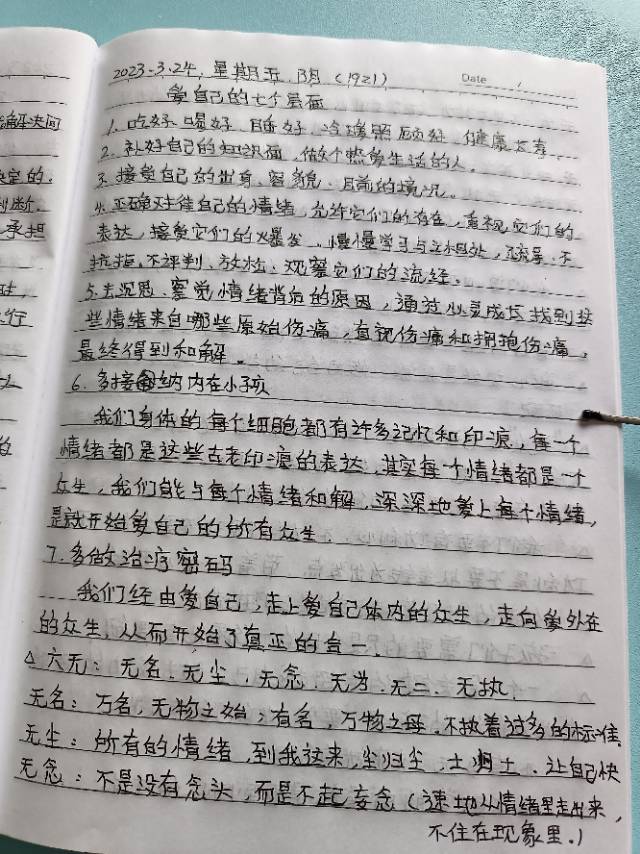 2023.3.24. 星期五. 阴 (1921)
Date
爱自己的七个层面
1. 吃好 喝好 睡好 冷暖照顾好 健康长寿
2. 补好自己的知识面, 做个热爱生活的人。
3. 接受自己的出身、容貌、目前的境况。
4. 正确对待自己的情绪, 允许它们的存在, 重视它们的
表达, 接受它们的爆发。慢慢学习与之相处, 疏导、不
抗拒、不评判、放松、观察它们的流经。
5. 去沉思、察觉情绪背后的原因, 通过心灵成长找到这
些情绪来自哪些原始伤痛, 直视伤痛和拥抱伤痛,
最终得到和解。
6. 多接纳内在小孩
我们身体的每个细胞都有许多记忆和印痕, 每一个
情绪都是这些古老印痕的表达, 其实每个情绪都是一个
众生, 我们能与每个情绪和解, 深深地爱上每个情绪,
是就开始爱自己的所有众生
7. 多做治疗密码
我们经由爱自己, 走上爱自己体内的众生, 走向爱外在
的众生, 从而开始了真正的合一.
△ 六无: 无名. 无尘. 无念. 无为. 无二. 无执.
无名: 万名, 无物之始; 有名, 万物之母. 不执着过多的标准.
无尘: 所有的情绪, 到我这来, 尘归尘, 土归土. 让自己快
无念: 不是没有念头, 而是不起妄念 (速地从情绪里走出来,
不住在现象里.)
解决问
定的.
判断.
承担
行